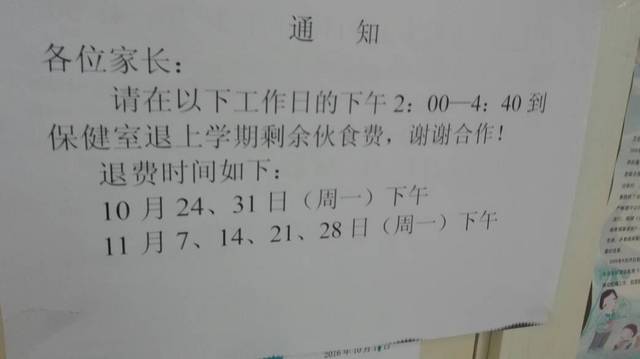 通 知
各位家长：
请在以下工作日的下午 2：00—4：40 到
保健室退上学期剩余伙食费，谢谢合作！
退费时间如下：
10 月 24、31 日（周一）下午
11 月 7、14、21、28 日（周一）下午